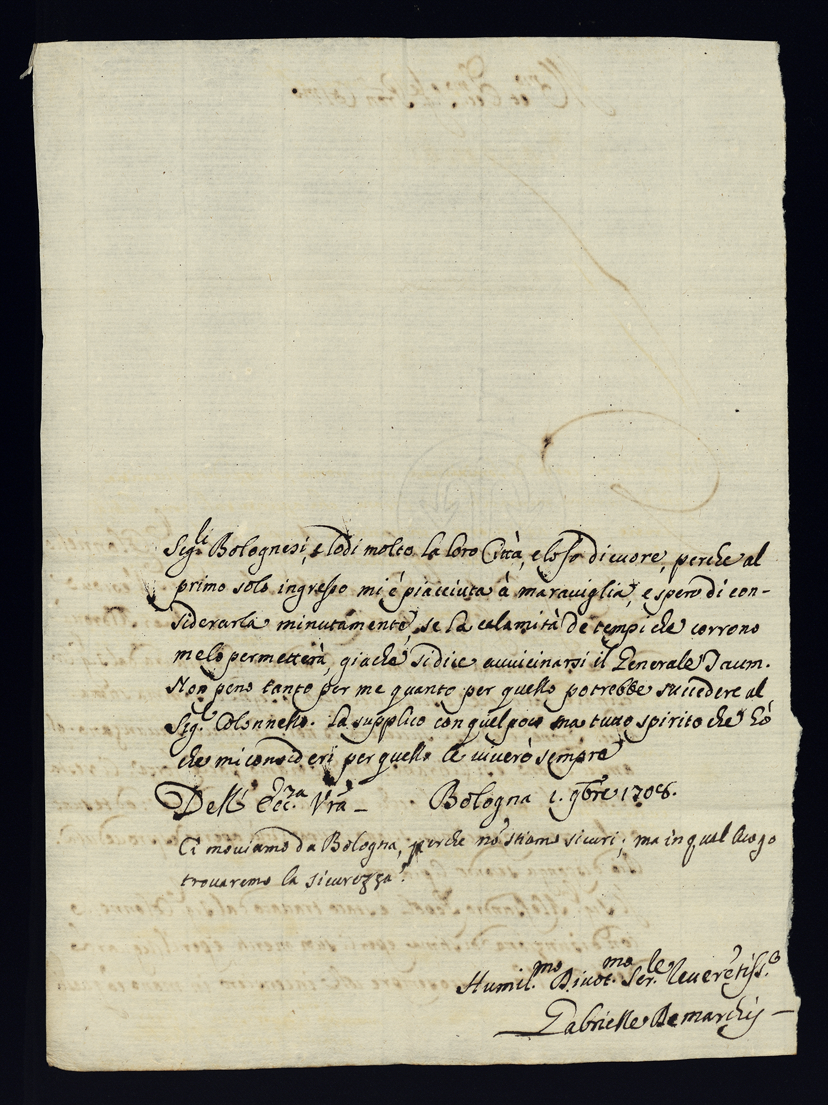 Sig.li Bolognesi, e lodi molto la loro Città, e lo fo di cuore, perche al
primo solo ingresso mi è piacciuta à maraviglia, e spero di con-
siderarla minutamente, se la calamità de tempi che corrono
melo permetterà, giache si dice avvicinarsi il Generale Daum.
Non peno tanto per me quanto per quello potrebbe succedere al
Sig.r Colonnello. La supplico con quel poco ma tutto spirito che hò
che mi consideri per quello le viverò sempre
Dell' Ecc.za Vra_ Bologna 1. 9bre 1708.
Ci moviamo da Bologna, perche nō stiamo sicuri; ma in qual luogo
trovaremo la sicurezza?
Humil.mo Divot.mo Ser.le Reverētiss.o
Gabrielle Demarchis